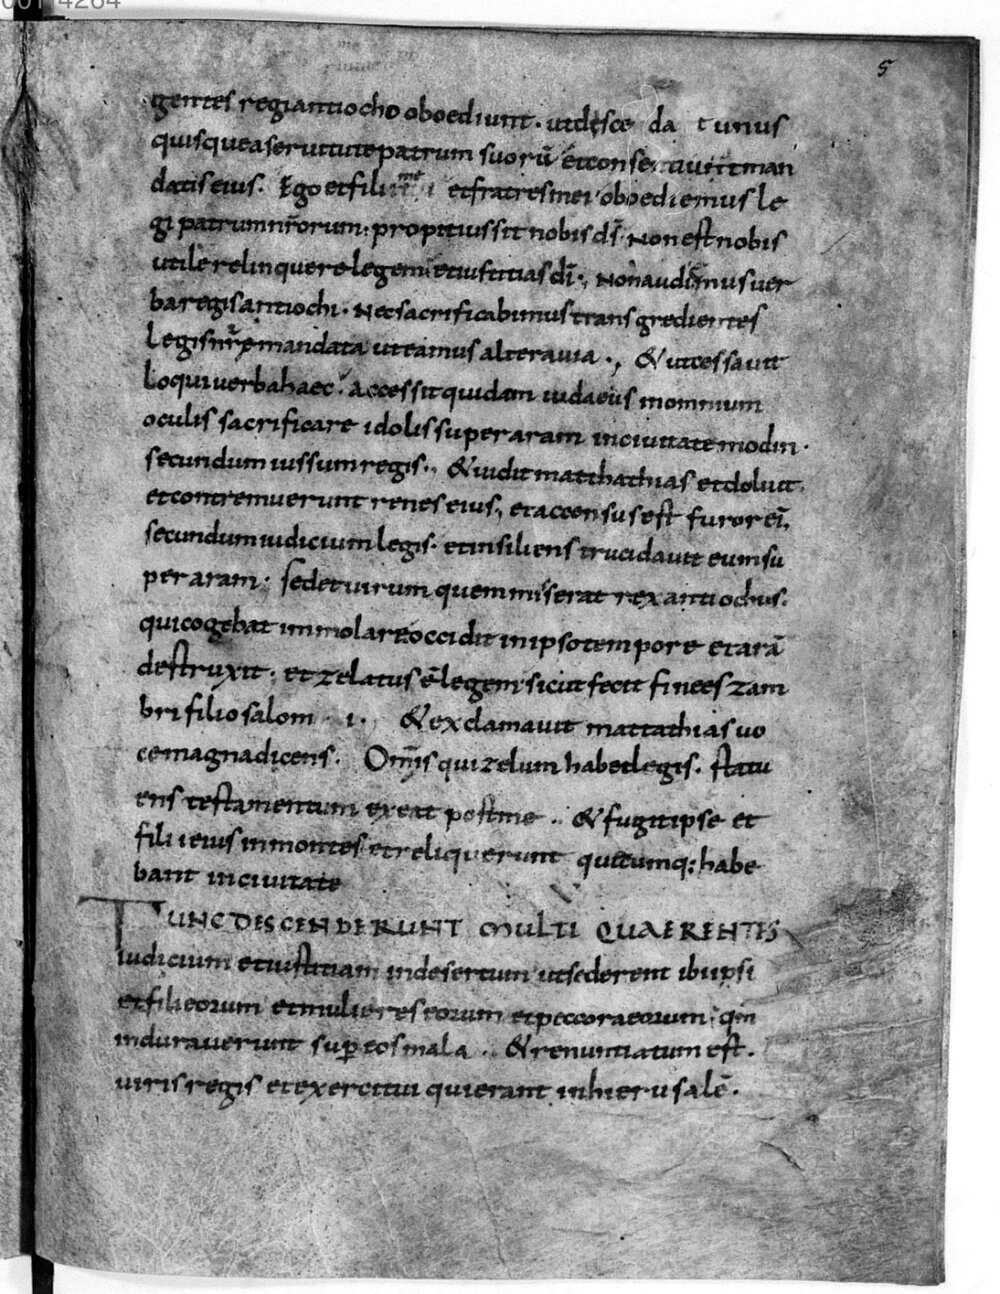 5
gentes regi antiocho oboediunt. ut desce da t unus
quisque a seruitute patrum suorū et conse tiunt man
datis eius. Ego et filii mei et fratres mei oboediemus le
gi patrum nr̄orum. propitius sit nobis ds̄. Non est nobis
utile relinquere legem et iustitias dī. Non audimus uer
ba regis antiochi. Nec sacrificabimus transgredientes
legis nr̄ę mandata ut eamus altera uia., & ut cessauit
loqui uerba haec. accessit quidam iudaeus in omnium
oculis sacrificare idolis super aram in ciuitate modin.
secundum iussum regis., & uidit matthathias et doluit.
et contremuerunt renes eius., et accensus est furor eī.
secundum iudicium legis. et insiliens trucidauit eum su
per aram; sed et uirum quem miserat rex antiochus.
qui cogebat immolare occidit in ipso tempore et arā
destruxit. et zelatus ē legem sicut fecit finees zam
bri filio salom i. & exclamauit mattathias uo
ce magna dicens. Om̄is qui zelum habet legis. statu
ens testamentum exeat post me .. & fugit ipse et
filii eius in montes et reliquerunt quęcumq; habe
bant in ciuitate
TUNC DISCENDERUNT MULTI QUAERENTES
iudicium et iustitiam in desertum ut sederent ibi ipsi
et filii eorum et mulieres eorum et peccora eorum. qm̄
indurauerunt sup̄ eos mala .. & renuntiatum est.
uiris regis et exercitui qui erant in hierusalē.